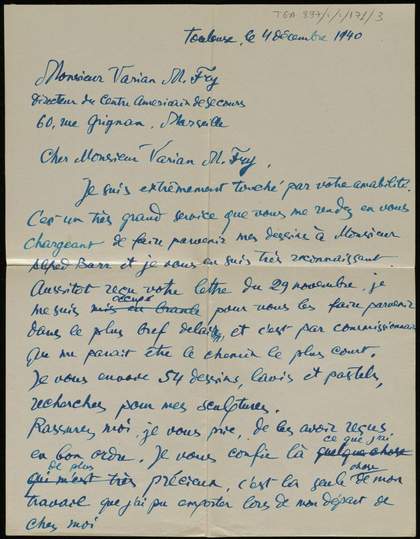 TGA 897/1/1/171/3
Toulouse, le 4 décembre 1940
Monsieur Varian M. Fry
Directeur du Centre Americain de secours
60, rue Grignan. Marseille
Cher Monsieur Varian M. Fry,
Je suis extrêmement touché par votre amabilité.
C'es un très grand service que vous me rendez en vous
chargeant de faire parvenir mes dessins à Monsieur
Alfred Barr et je vous en suis très reconnaissant.
Aussitot reçu votre lettre du 29 novembre, je
me suis mis en branle occupé pour vous les faire parvenir
dans le plus bref delais, et c'est par commissionnaire
que me parait être le chemin le plus court.
Je vous envoie 54 dessins, lavis et pastels,
recherches pour mes sculptures.
Rassurez moi, je vous prie, de les avoir reçus
en bon ordre. Je vous confie là quelque chose ce que j'ai
qui m'est de plus très précieux, c'est la seule chose de mon
travail que j'ai pu emporter lors de mon départ de
chez moi